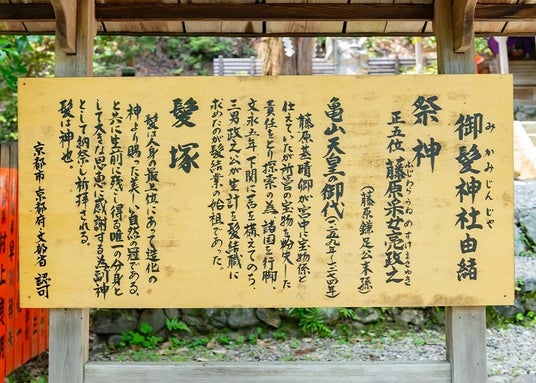 みかみじんじや
御髪神社由緒
祭神
ふじわらうねめすけまさゆき
正五位 藤原采女亮政之
(藤原鎌足公末孫)
亀山天皇の御代(一二五九年~一二七四年)
藤原基晴卿が宮中に宝物係と
仕えていたが所管の宝物を紛失した
責任をとり探索の為諸国を行脚、
文永五年下関に居を構えてのち、
三男政之公が生計を髪結職に
求めたのが髪結業の始祖であった。
髪塚
髪は人身の最上位にあって造化の
神より賜った美しい自然の冠である、
と共に生前に残し得る唯一の分身と
して大きな恩恵に感謝する為副神
として納祭し祈拝される。
髪は神也。
京都市・京都府・文部省 認可